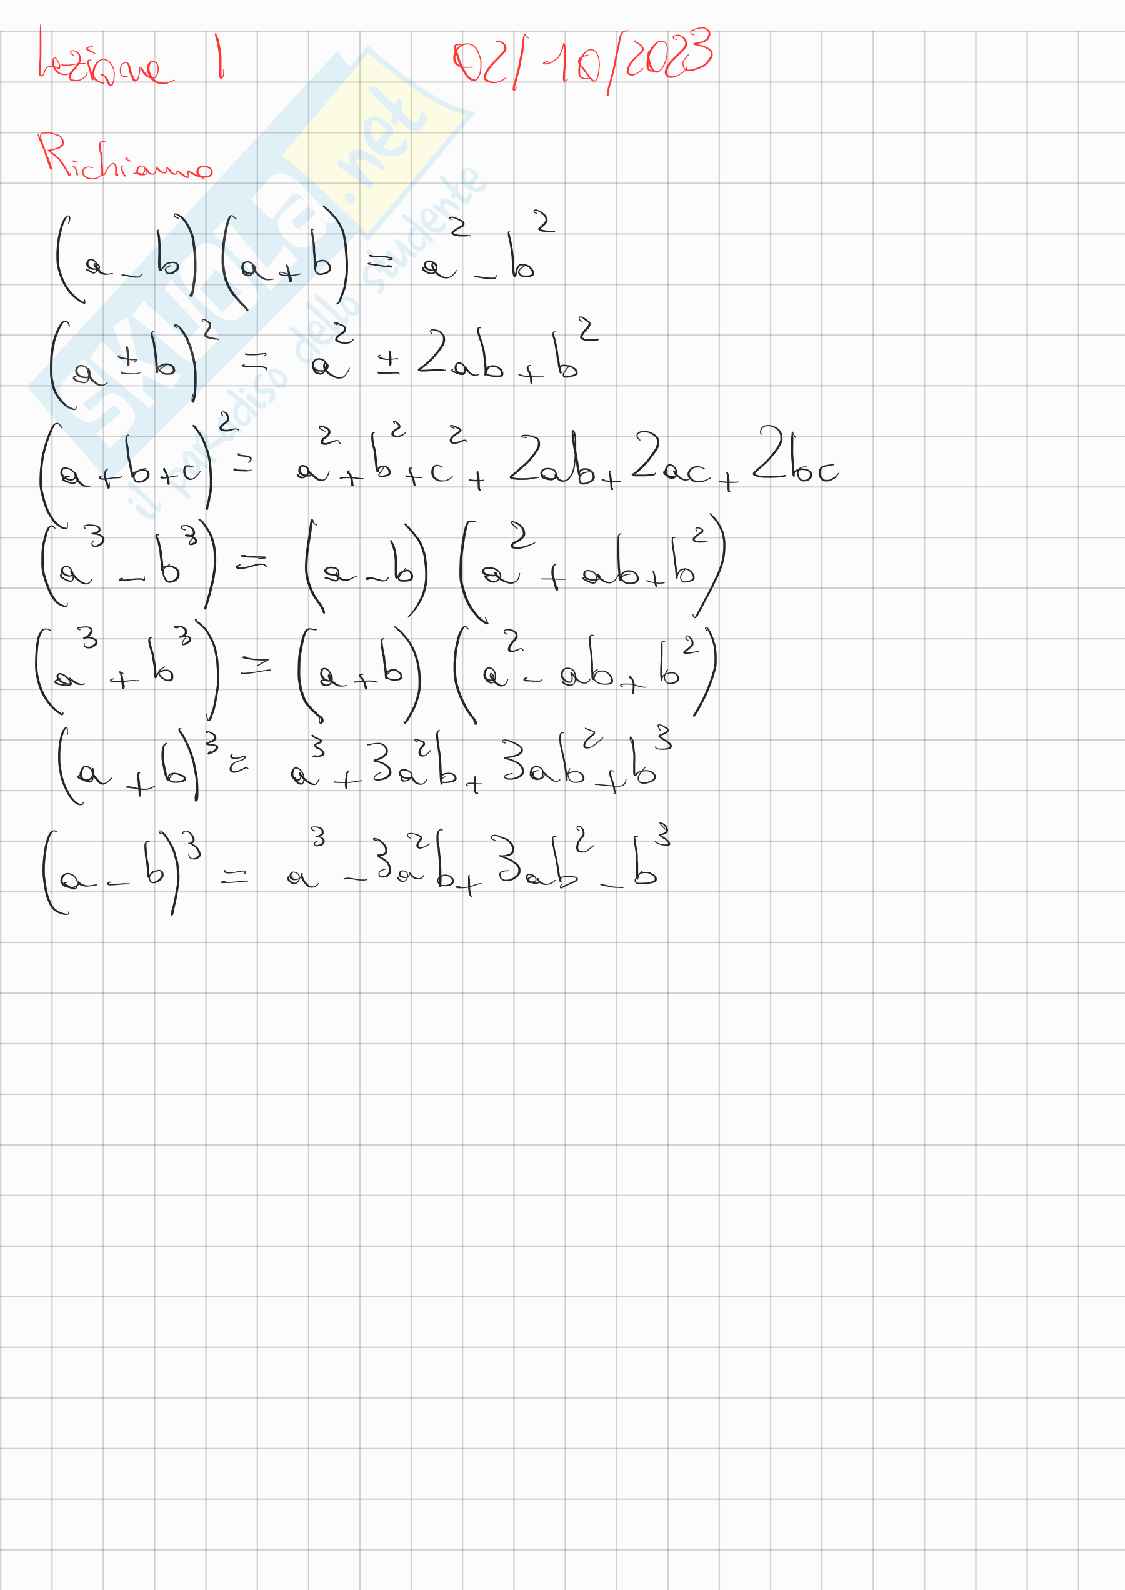 Lezione 1 02/10/2023
Richiamo
(a-b)(a+b) = a²-b²
(a±b)² = a² ± 2ab+b²
(a+b+c)² = a²+b²+c²+2ab+2ac+2bc
(a³-b³) = (a-b) (a²+ab+b²)
(a³+b³) = (a+b) (a²-ab+b²)
(a+b)³ = a³+3a²b+3ab²+b³
(a-b)³ = a³-3a²b+3ab²-b³
SKUOLA.net
il paradiso dello studente